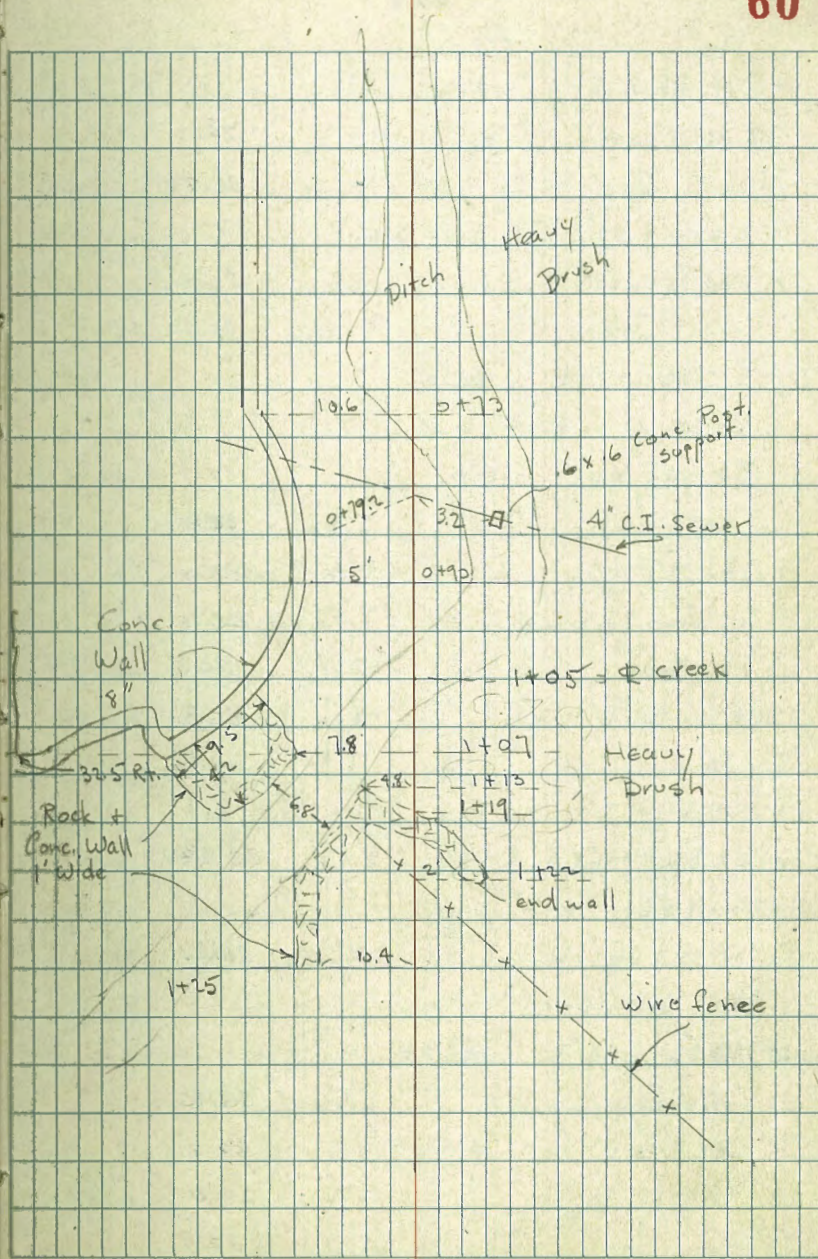 60
Heavy
Brush
Ditch
10.6 0+73
.6 x .6 Conc. Post.
support
0+79.2
3.2
4" C.I. Sewer
5' 0+90
Conc.
Wall
8"
1+05 = ℄ creek
9.5
7.8 1+07
Heavy
Brush
32.5 Rt.
4.2
4.8 1+13
6.8
1+19
Rock +
Conc. Wall
1' Wide
2' 1+22
end wall
10.4
1+25
Wire fence